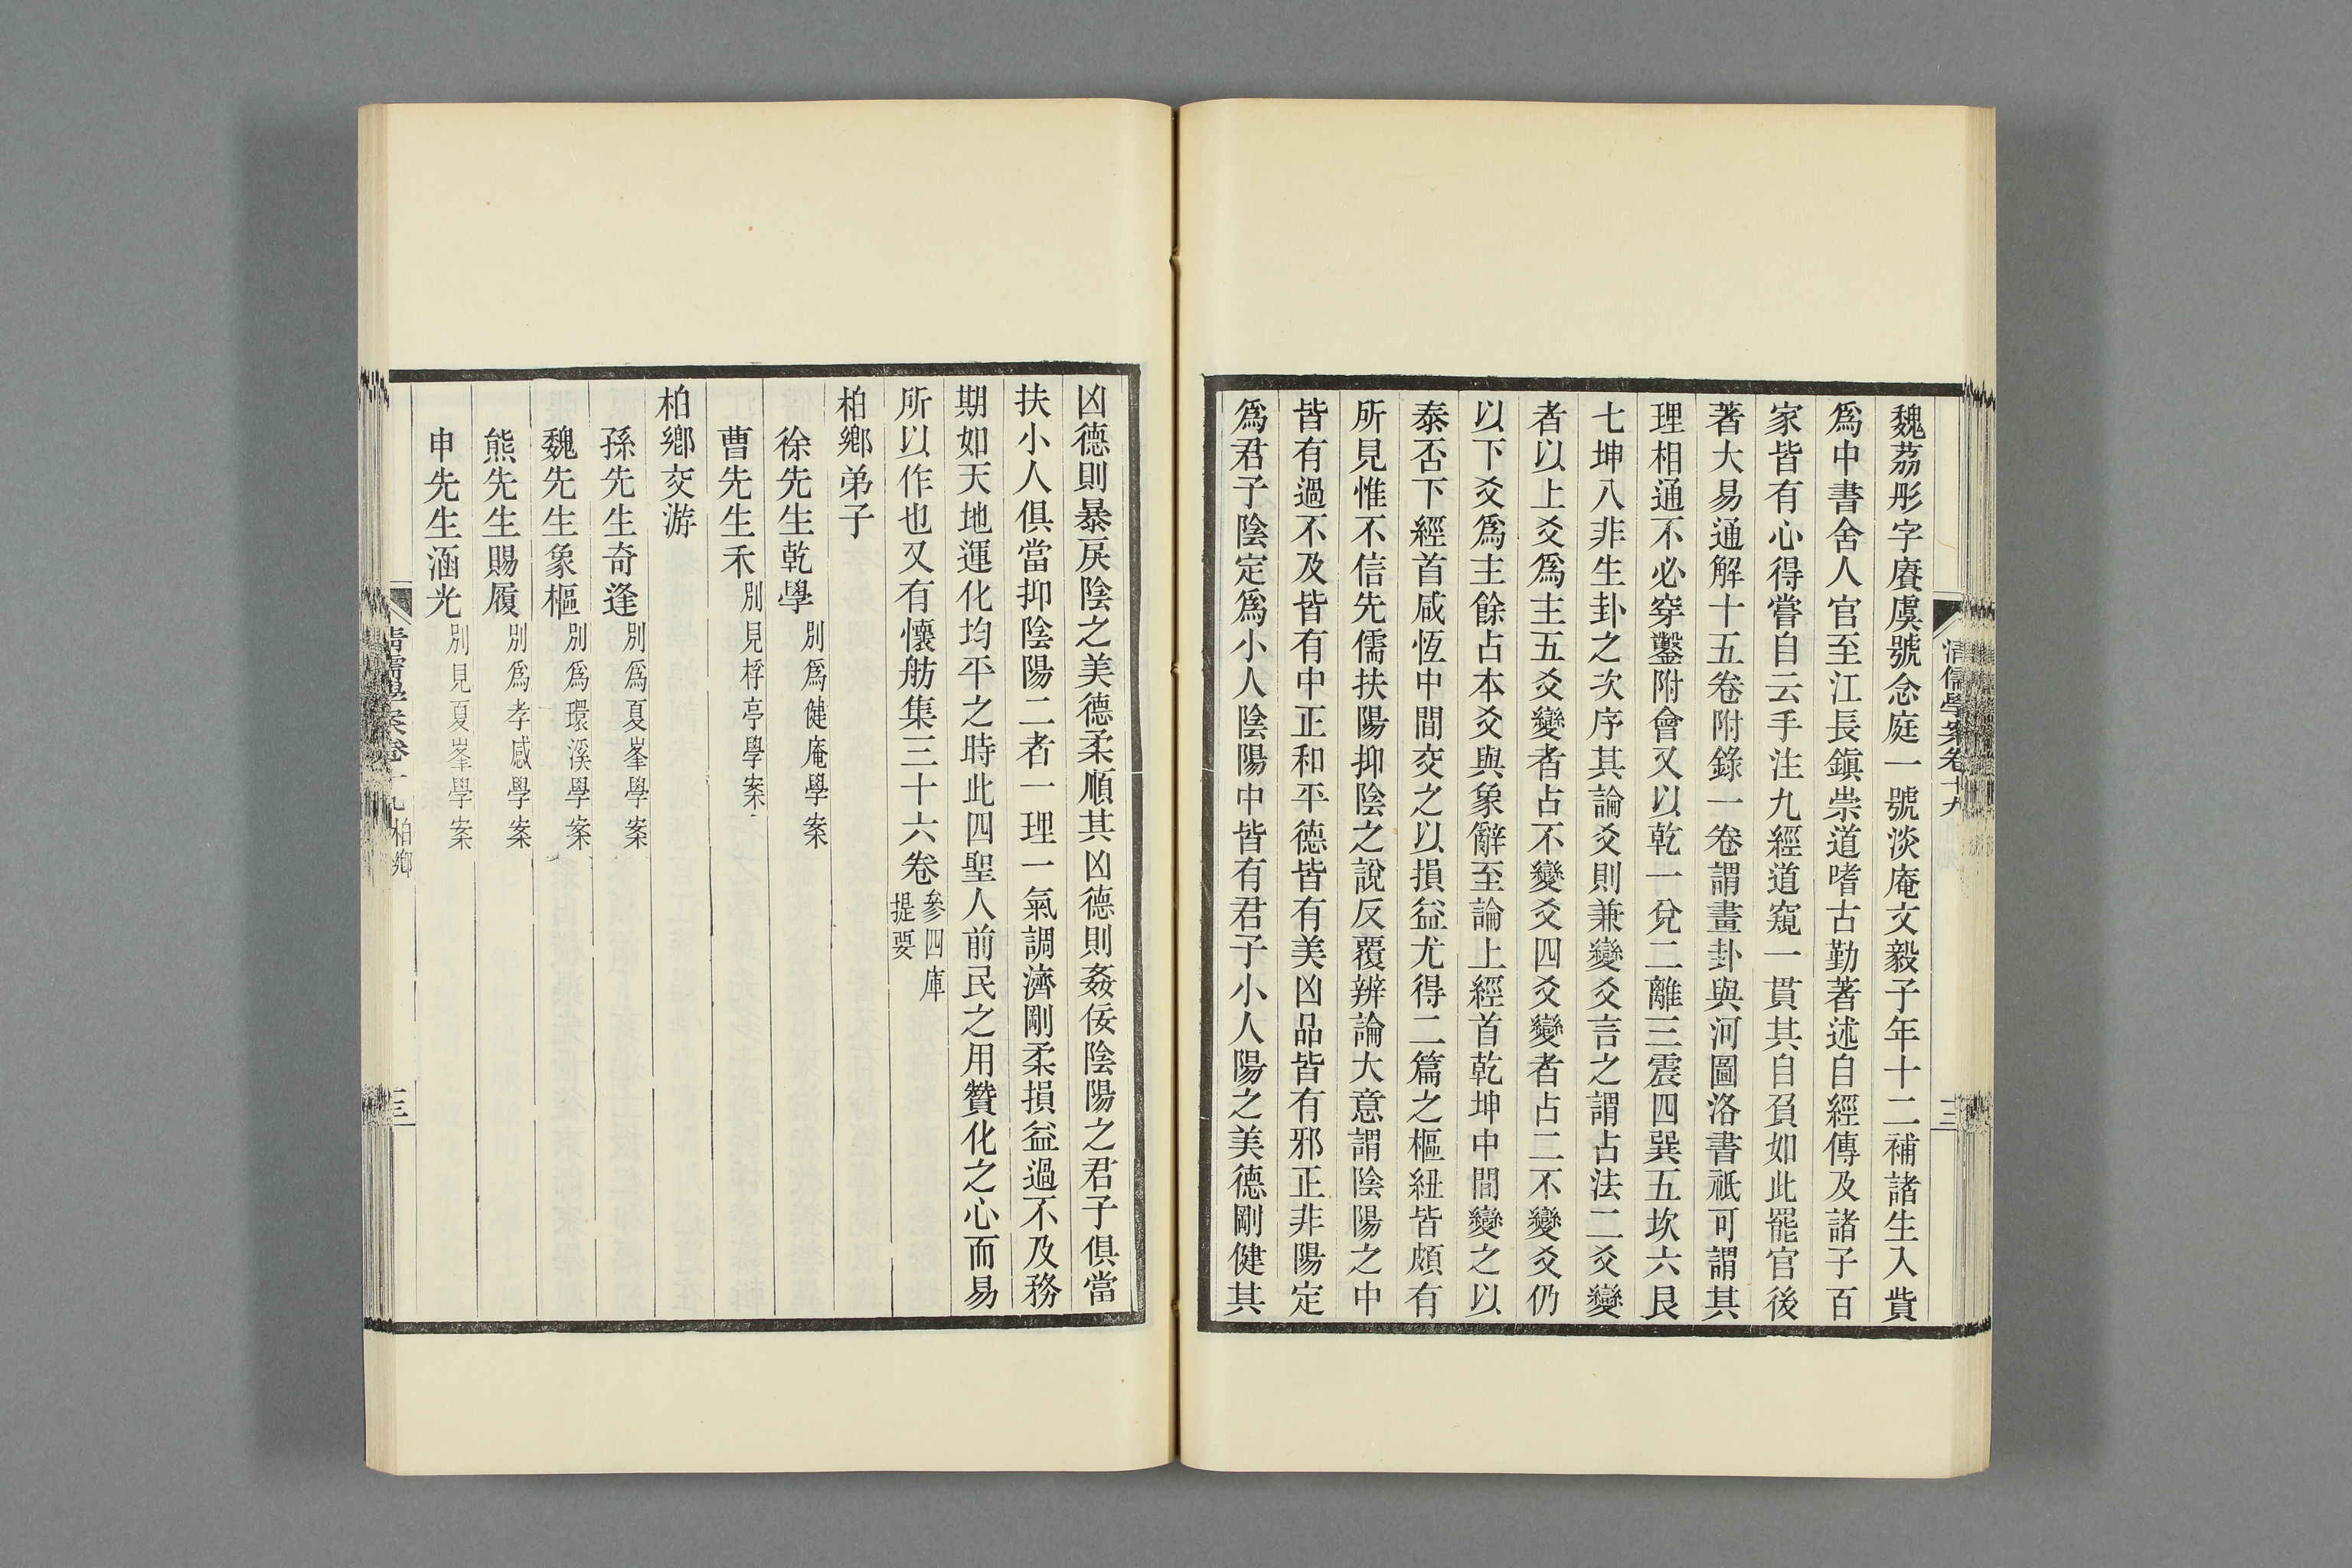 清儒學案卷十九
三
魏荔彤字賡虞號念庭一號淡庵文毅子年十二補諸生入貲
爲中書舍人官至江長鎭崇道嗜古勤著述自經傳及諸子百
家皆有心得嘗自云手注九經道窺一貫其自負如此罷官後
著大易通解十五卷附錄一卷謂畫卦與河圖洛書祇可謂其
理相通不必穿鑿附會又以乾一兌二離三震四巽五坎六艮
七坤八非生卦之次序其論爻則兼變爻言之謂占法二爻變
者以上爻爲主五爻變者占不變爻四爻變者占二不變爻仍
以下爻爲主餘占本爻與象辭至論上經首乾坤中間變之以
泰否下經首咸恆中間交之以損益尤得二篇之樞紐皆頗有
所見惟不信先儒扶陽抑陰之說反覆辨論大意謂陰陽之中
皆有過不及皆有中正和平德皆有美凶品皆有邪正非陽定
爲君子陰定爲小人陰陽中皆有君子小人陽之美德剛健其
凶德則暴戾陰之美德柔順其凶德則姦佞陰陽之君子俱當
扶小人俱當抑陰陽二者一理一氣調濟剛柔損益過不及務
期如天地運化均平之時此四聖人前民之用贊化之心而易
所以作也又有懷舫集三十六卷參四庫提要
柏鄉弟子
徐先生乾學別爲健庵學案
曹先生禾別見桴亭學案
柏鄉交游
孫先生奇逢別爲夏峯學案
魏先生象樞別爲環溪學案
熊先生賜履別爲孝感學案
申先生涵光別見夏峯學案
清儒學案卷十九 柏鄉
三